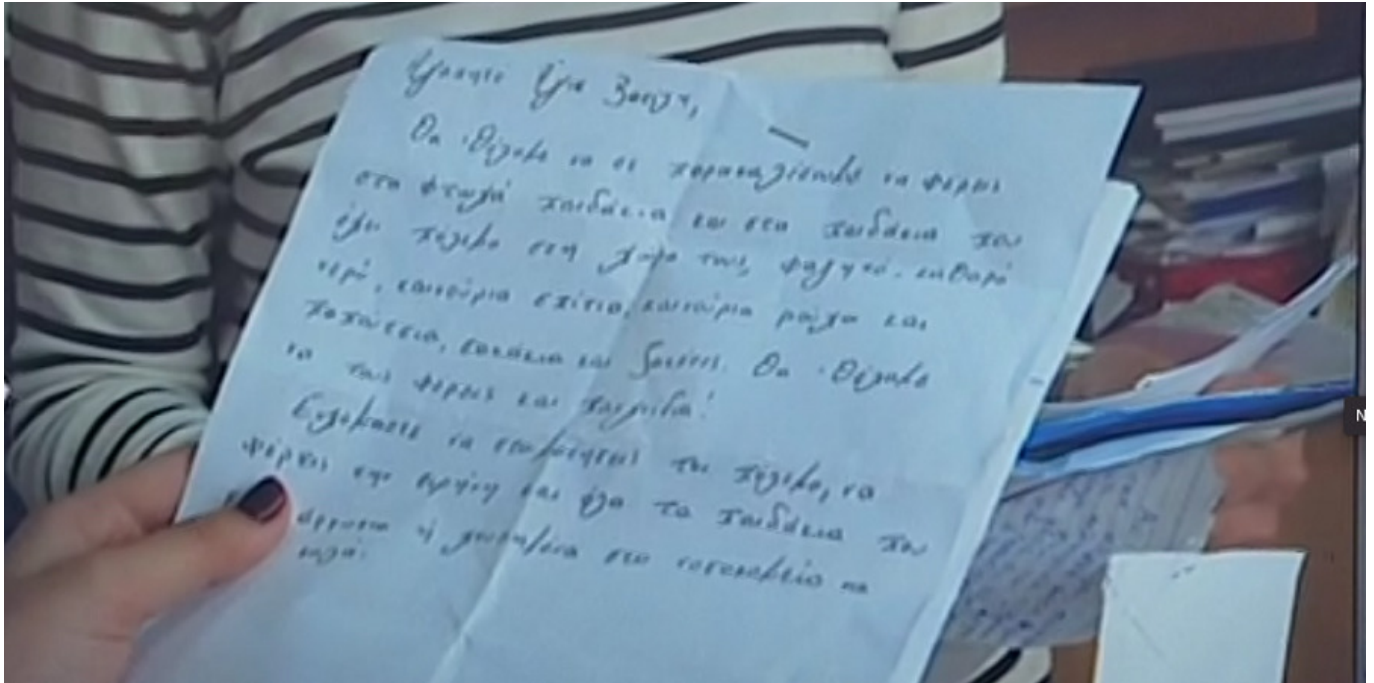 Αγαπητέ Άγιε Βασίλη,
Θα θέλαμε να σε παρακαλέσουμε να φέρεις
στα φτωχά παιδάκια και στα παιδάκια που
έχει πόλεμο στη χώρα τους, φαγητό, καθαρό
νερό, καινούρια σπίτια, καινούρια ρούχα και
παπούτσια, σακάκια και ζακέτες. Θα θέλαμε
να τους φέρεις και παιχνίδια!
Ευχόμαστε να σταματήσεις τον πόλεμο, να
φέρεις την ειρήνη και όλα τα παιδάκια που
άρρωστα ή χτυπημένα στο νοσοκομείο να
καλά.
N